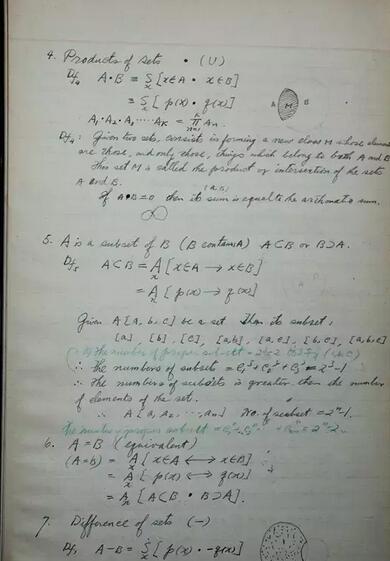 4. Products of sets • (U)
Df4 A·B = S x [x∈A • x∈B]
= S x [p(x) • q(x)]
A M B
A1·A2·A3····AK = π An. K n=1
Df4: Given two sets, consists in forming a new class M whose elements
are those, and only those, things which belong to both A and B.
This set M is called the product or intersection of the sets
A and B.
(a,b)
If A•B=0 then its sum is equal to the sum.
5. A is a subset of B (B contains A) A⊂B or B⊃A.
Df5 A⊂B = A x [x∈A → x∈B]
= A x [p(x) → q(x)]
Given A[a, b, c] be a set then its subset,
[a], [b], [c], [a,b], [a,c], [b,c], [a,b,c]
the number of proper subset =
∴ the numbers of subsets = C₁³+C₂³+C₃³ = 2³-1
∴ the numbers of subsets is greater than the number
of elements of the set.
∴ A[a1, a2, ···, an] No. of subset = 2ⁿ-1.
The number proper subset = 2ⁿ-2
6. A=B (equivalent)
(A=B) = A x [x∈A ⟷ x∈B]
= A x [p(x) ⟷ q(x)]
= A x [A⊂B • B⊃A].
7. Difference of sets (−)
Df7 A−B = S x [p(x) • −q(x)]